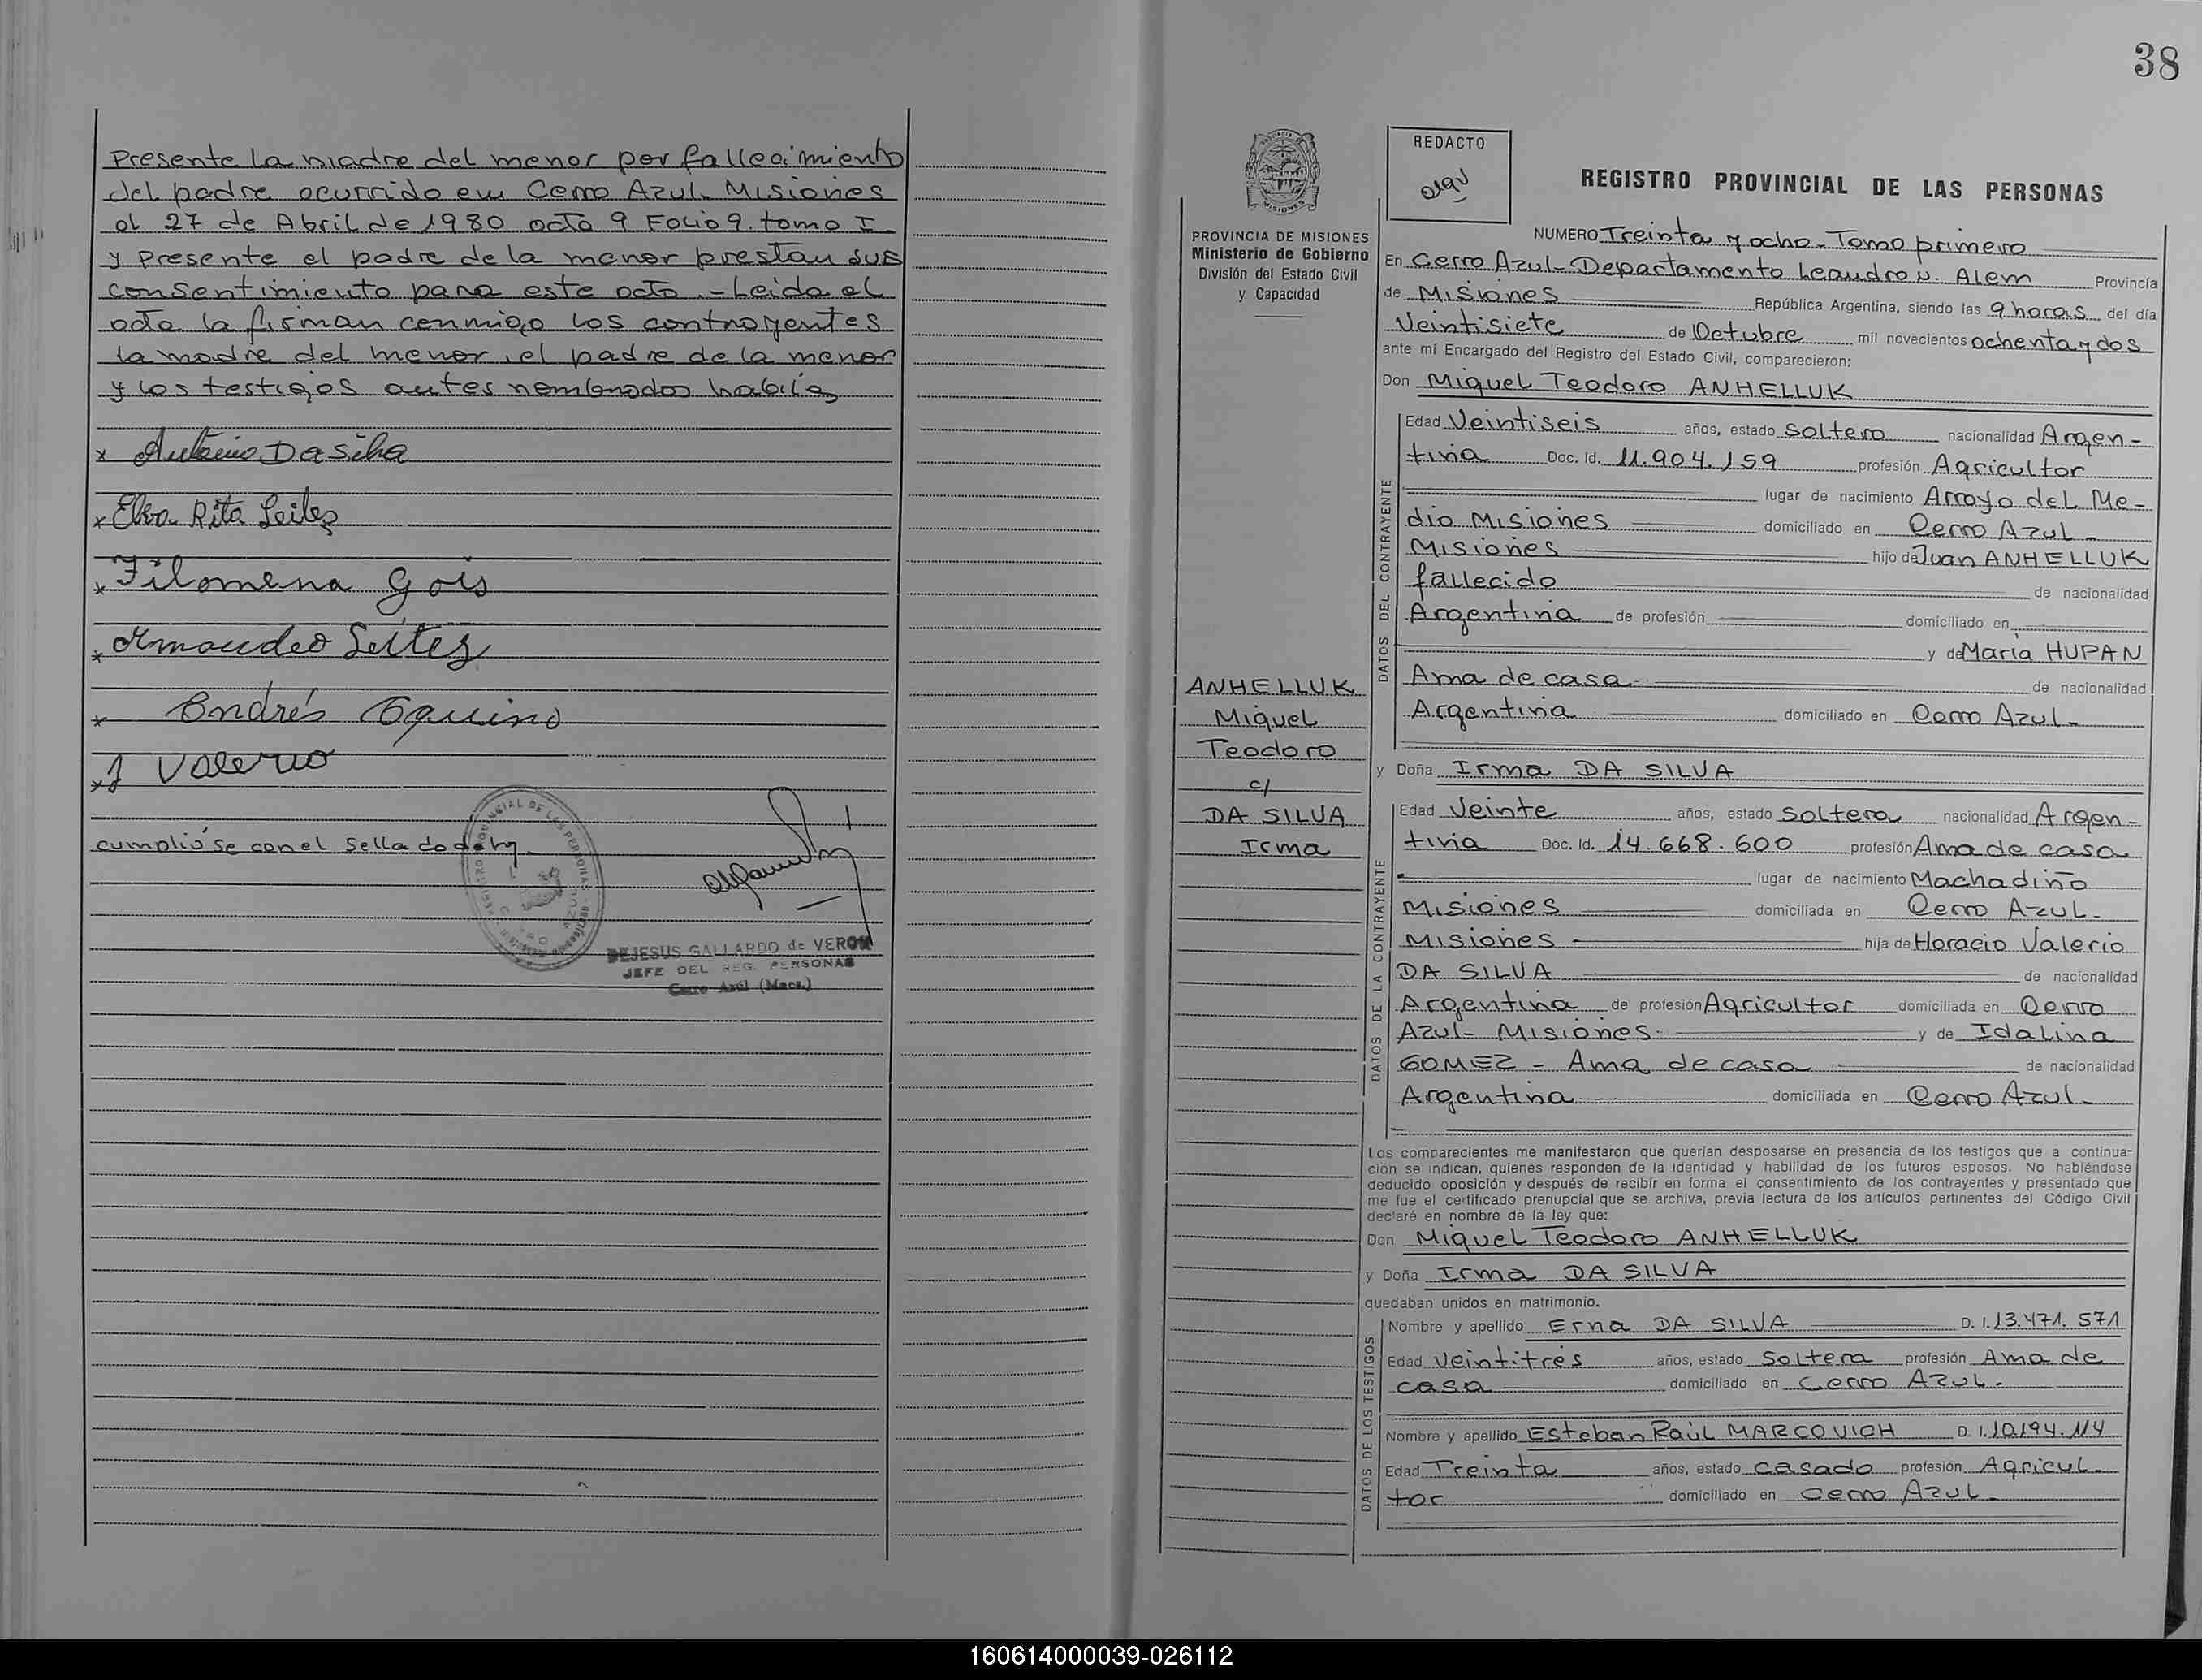 Presente la madre del menor por fallecimiento
del padre ocurrido en Cerro Azul- Misiones
el 27 de Abril de 1980 acta 9 Folio 9. tomo I
y presente el padre de la menor prestan sus
consentimiento para este acto .- Leida el
acta la firman conmigo los contrayentes
la madre del menor, el padre de la menor
y los testigos antes nombrados habiles
x Antonio Da Silva
x Elva Rita Leites
x Filomena Gois
x Amandeo Leites
x Andrés Aquino
x J Valerio
cumplió se con el Sellado de ley-
DEJESUS GALLARDO de VERON
JEFE DEL REG. PERSONAS
Cerro Azul (Mnes.)
38
REDACTO
PROVINCIA DE MISIONES
Ministerio de Gobierno
División del Estado Civil
y Capacidad
ANHELLUK
Miguel
Teodoro
c/
DA SILVA
Irma
REGISTRO PROVINCIAL DE LAS PERSONAS
NUMERO Treinta y ocho - Tomo primero
En Cerro Azul- Departamento Leandro N. Alem Provincia
de Misiones República Argentina, siendo las 9 horas del día
Veintisiete de Octubre mil novecientos ochenta y dos
ante mí Encargado del Registro del Estado Civil, comparecieron:
Don Miguel Teodoro ANHELLUK
DATOS DEL CONTRAYENTE
Edad Veintiseis años, estado soltero nacionalidad Argen-
tina Doc. Id. 11.904.159 profesión Agricultor
lugar de nacimiento Arroyo del Me-
dio Misiones domiciliado en Cerro Azul-
Misiones hijo de Juan ANHELLUK
fallecido de nacionalidad
Argentina de profesión domiciliado en
y de María HUPAN
Ama de casa de nacionalidad
Argentina domiciliado en Cerro Azul-
y Doña Irma DA SILVA
DATOS DE LA CONTRAYENTE
Edad Veinte años, estado Soltera nacionalidad Argen-
tina Doc. Id. 14.668.600 profesión Ama de casa
lugar de nacimiento Machadiño
Misiones domiciliada en Cerro Azul-
Misiones hija de Horacio Valerio
DA SILVA de nacionalidad
Argentina de profesión Agricultor domiciliada en Cerro
Azul- Misiones- y de Idalina
GOMEZ - Ama de casa de nacionalidad
Argentina domiciliada en Cerro Azul-
Los comparecientes me manifestaron que querían desposarse en presencia de los testigos que a continua-
ción se indican, quienes responden de la identidad y habilidad de los futuros esposos. No habiéndose
deducido oposición y después de recibir en forma el consentimiento de los contrayentes y presentado que
me fue el certificado prenupcial que se archiva, previa lectura de los artículos pertinentes del Código Civil
declaré en nombre de la ley que:
Don Miguel Teodoro ANHELLUK
y Doña Irma DA SILVA
quedaban unidos en matrimonio.
DATOS DE LOS TESTIGOS
Nombre y apellido Erna DA SILVA D. I. 13.471.571
Edad Veintitres años, estado Soltera profesión Ama de
casa domiciliado en Cerro Azul.
Nombre y apellido Esteban Raúl MARCOVICH D. I. 10.194.114
Edad Treinta años, estado casado profesión Agricul-
tor domiciliado en Cerro Azul-
160614000039-026112